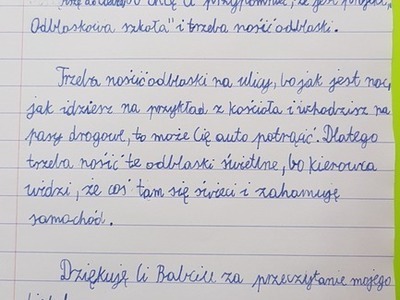 chcę Ci przypomnieć, że jest projekt „
Odblaskowa szkoła" i trzeba nosić odblaski.
Trzeba nosić odblaski na ulicy, bo jak jest noc,
jak idziesz na przykład z kościoła i wchodzisz na
pasy drogowe, to może Cię auto potrącić. Dlatego
trzeba nosić te odblaski świetlne, bo kierowca
widzi, że coś tam się świeci i zahamuję
samachód.
Dziękuję Ci Babciu za przeczytanie mojego